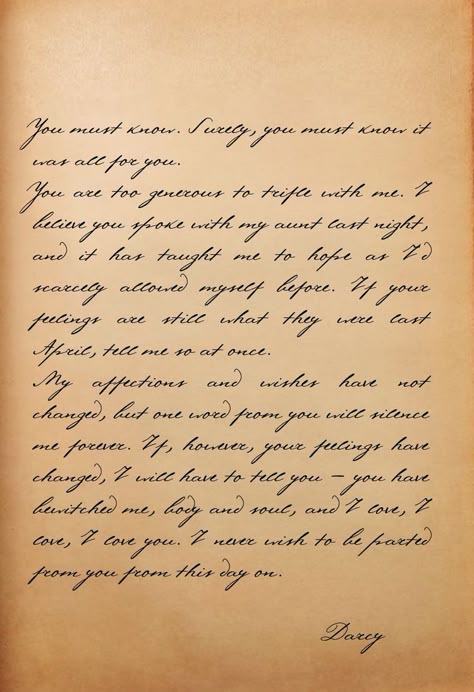 You must know. Surely, you must know it
was all for you.
You are too generous to trifle with me. I
believe you spoke with my aunt last night,
and it has taught me to hope as I'd
scarcely allowed myself before. If your
feelings are still what they were last
April, tell me so at once.
My affections and wishes have not
changed, but one word from you will silence
me forever. If, however, your feelings have
changed, I will have to tell you – you have
bewitched me, body and soul, and I love, I
love, I love you. I never wish to be parted
from you from this day on.
Darcy